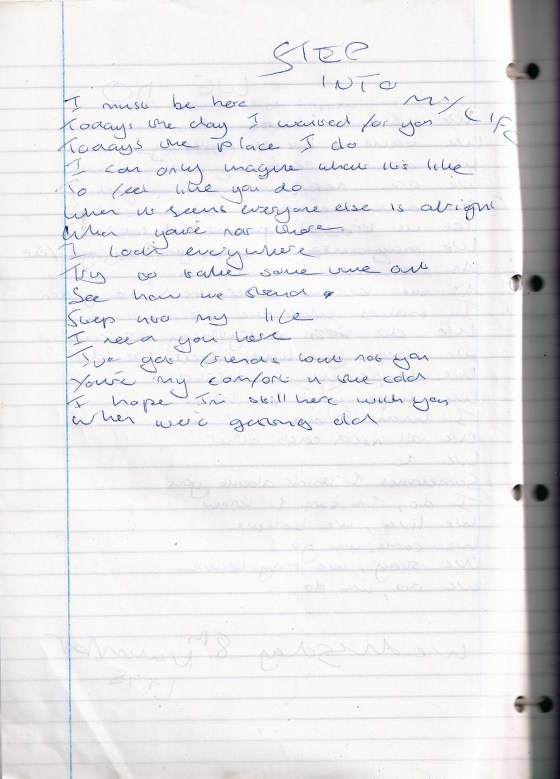 STEP
INTO
MY LIFE
I must be here
Today's the day I waited for you
Today's the place I do
I can only imagine what it's like
To feel like you do
When it seems everyone else is alright
When you're not there
I look everywhere
Try to take some time out
See how we stand
Step into my life
I need you here
I've got friends but not you
You're my comfort in the cold
I hope I'm still here with you
When we're getting old